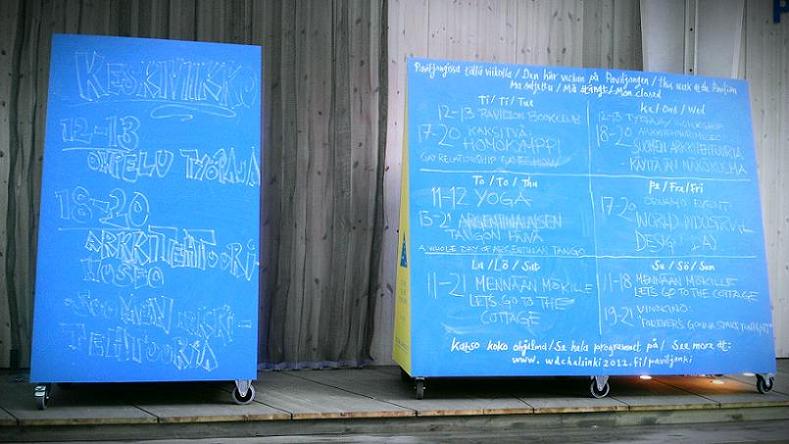 KESKIVIIKKO
12-13
OMPELU TYÖPAJA
18-20
ARKKITEHTUURI-
MUSEO
SUOMEN ARKKI-
TEHTUURIA
P
Paviljongissa tällä viikolla / Den här veckan på Paviljongen / this week at the Pavilion
Ma suljettu / Må stängt / Mon closed
Ti / Ti / Tue
12-13 PAVILION BOOKCLUB
17-20 KAKSITVÄ
HOMOKAPPI
GAY RELATIONSHIP
Ke / Ons / Wed
12-13 TYÖPAJA
18-20
SUOMEN ARKKITEHTUURIA
NÄKÖKULMA
To / To / Thu
11-12 YOGA
15-21 ARGENTIINALAISEN
TANGON PÄIVÄ
A WHOLE DAY OF ARGENTINIAN TANGO
Pe / Fre / Fri
17-20 EVENT:
WORLD INDUSTRIAL
DESIGN DAY
La / Lö / Sat
11-21 MENNÄÄN MÖKILLE
LETS GO TO THE
COTTAGE
Su / Sö / Sun
11-18 MENNÄÄN MÖKILLE
LETS GO TO THE COTTAGE
19-21 VINOKINO:
Katso koko ohjelma / Se hela programmet på / See more at:
www.wdchelsinki2012.fi/paviljonki